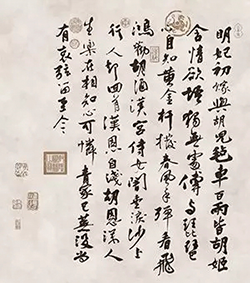 明妃初嫁與胡兒氈車百兩皆胡姬
含情欲語獨無處傳與琵琶
心自知黃金杆撥春風手彈看飛
鴻勸胡酒漢宮侍女闇垂淚沙上
行人却回首漢恩自淺胡恩深人
生樂在相知心可憐青冢已蕪沒尚
有哀弦留至今